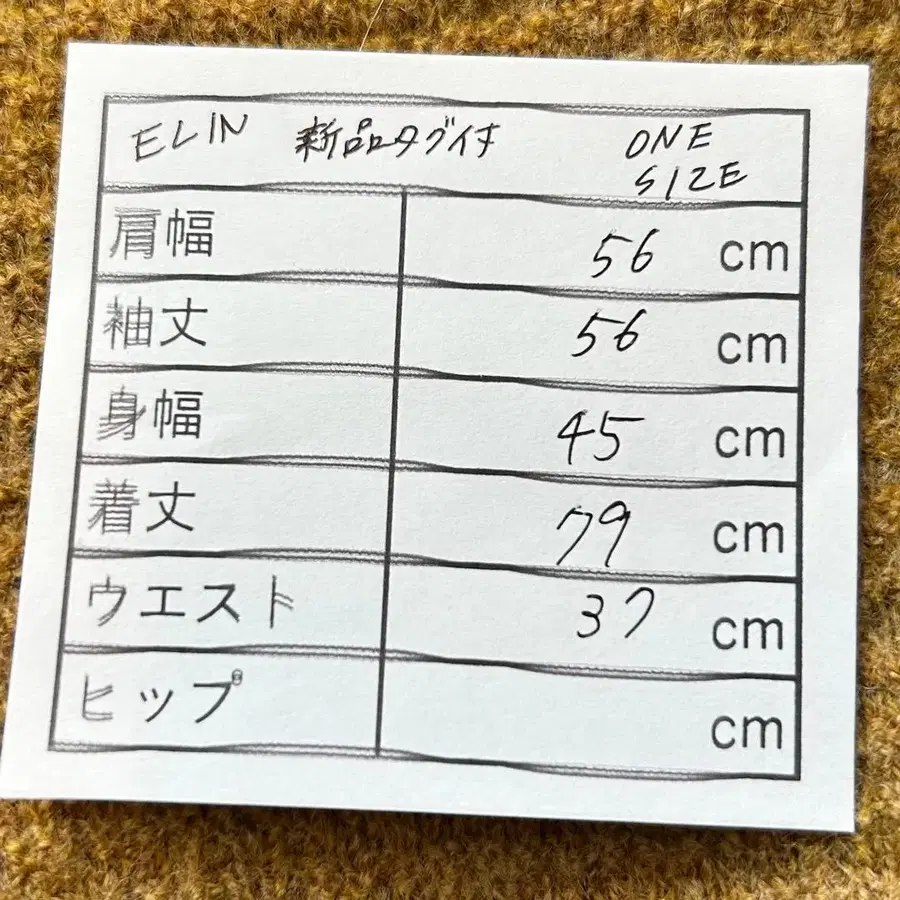 ELIN 新品タグ付 ONE SIZE
肩幅 56 cm
袖丈 56 cm
身幅 45 cm
着丈 79 cm
ウエスト 37 cm
ヒップ cm